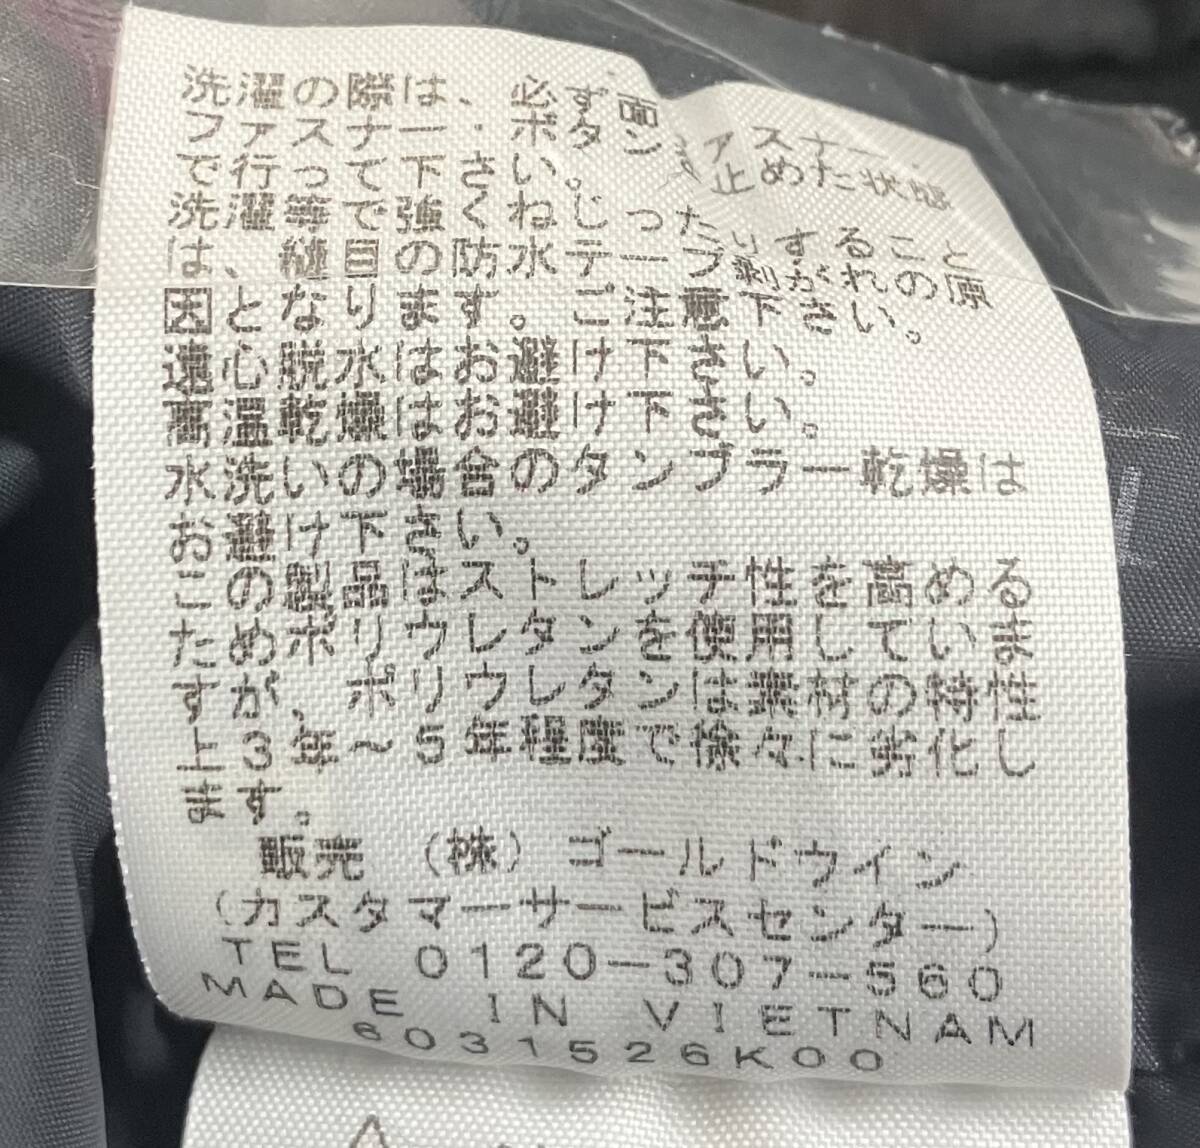 洗濯の際は、必ず面ファスナー・
ファスナー・ボタン を止めた状態
で行って下さい。
洗濯等で強くねじったりすること
は、縫目の防水テープ剥がれの原
因となります。ご注意下さい。
遠心脱水はお避け下さい。
高温乾燥はお避け下さい。
水洗いの場合のタンブラー乾燥は
お避け下さい。
この製品はストレッチ性を高める
ためポリウレタンを使用していま
すが、ポリウレタンは素材の特性
上3年～5年程度で徐々に劣化し
ます。
販売 (株)ゴールドウイン
(カスタマーサービスセンター)
TEL 0120-307-560
MADE IN VIETNAM
6031526K00